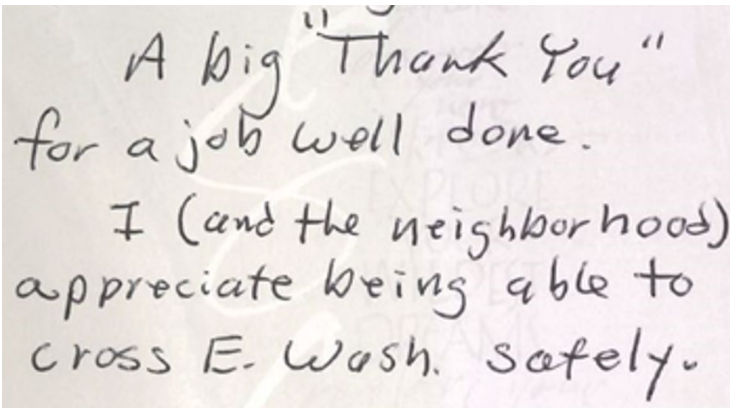 A big "Thank You"
for a job well done.
I (and the neighborhood)
appreciate being able to
cross E. Wash. safely.